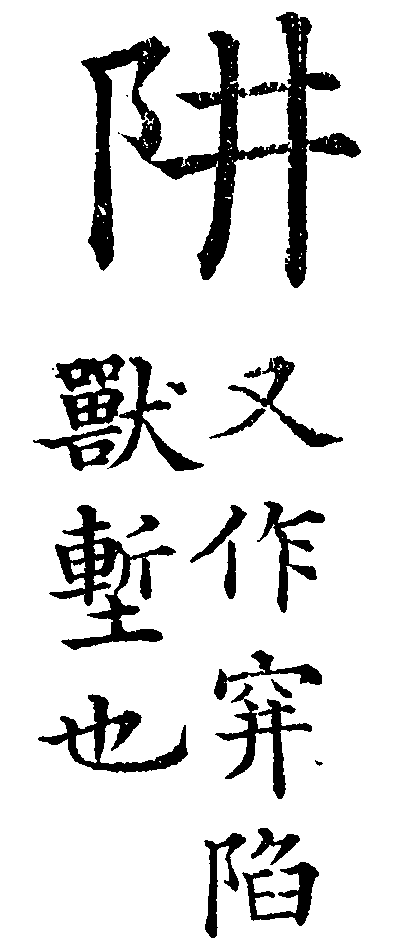 阱
又作穽陷
獸塹也